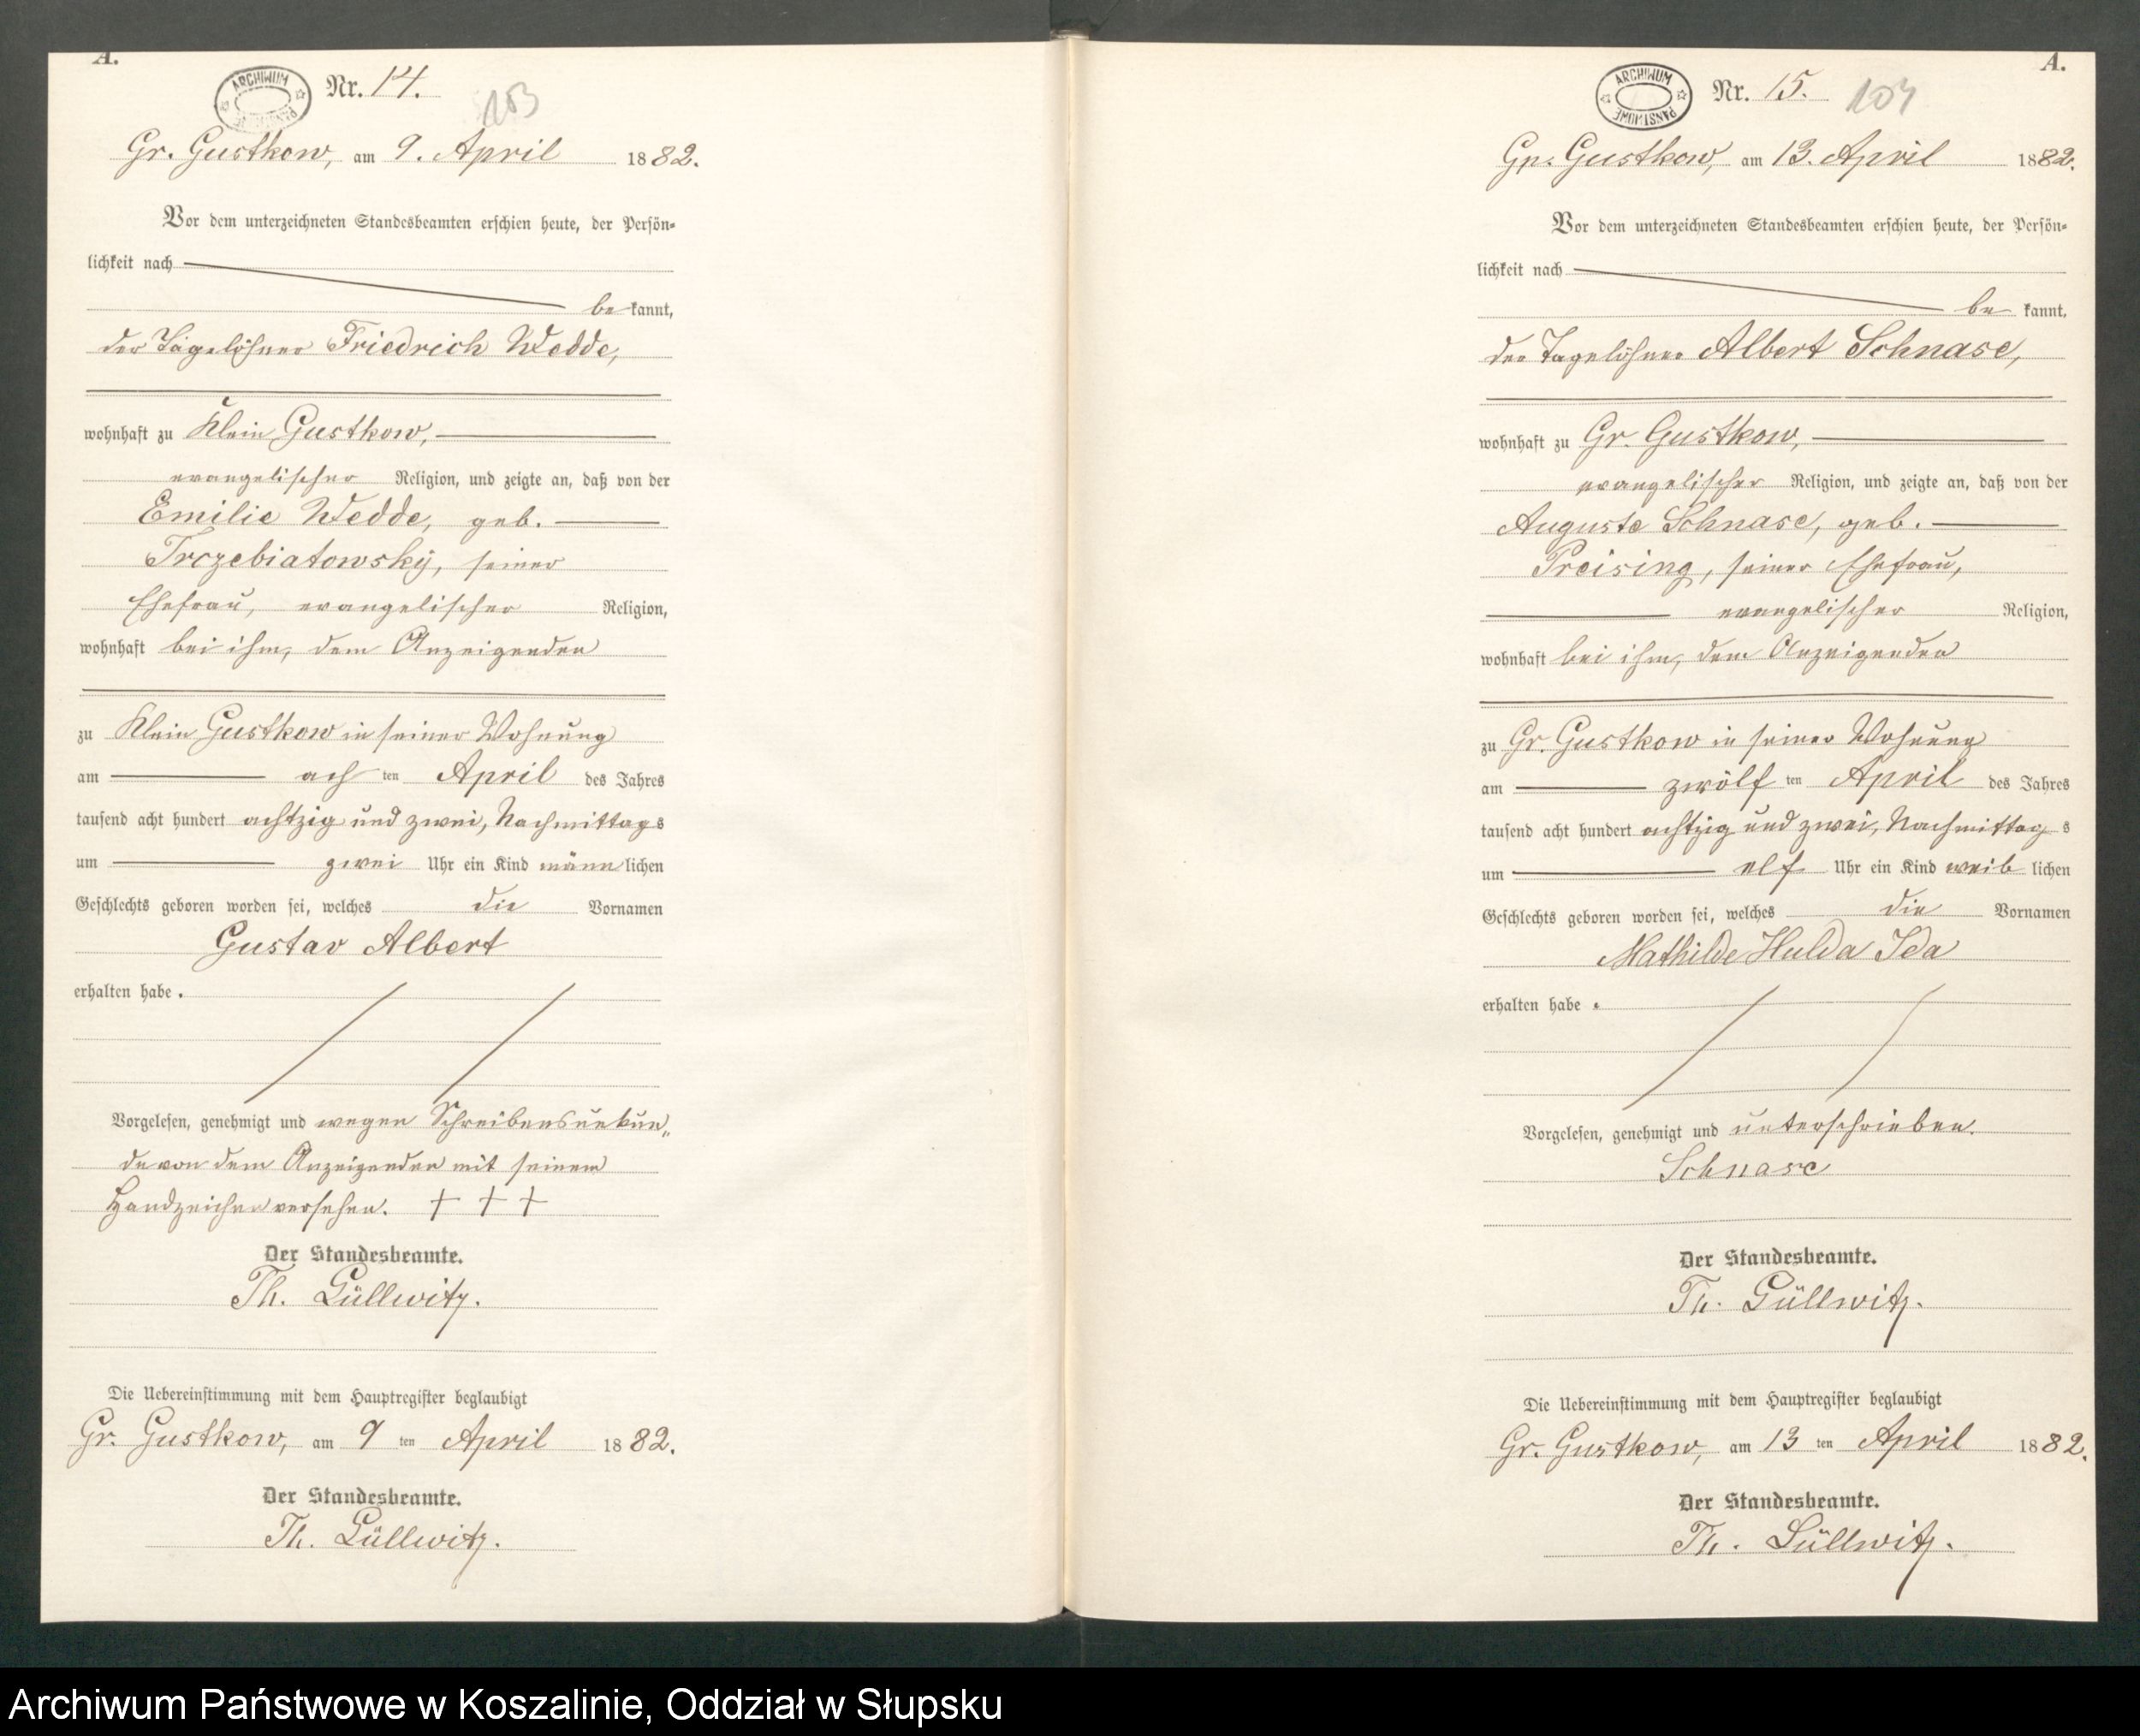 A.
ARCHIWUM PAŃSTWOWE
Nr. 14.
103
Gr. Gustkow, am 9. April 1882.
Vor dem unterzeichneten Standesbeamten erschien heute, der Persön-
lichkeit nach
be kannt,
der Tagelöhner Friedrich Wedde,
wohnhaft zu Klein Gustkow,
evangelischer Religion, und zeigte an, daß von der
Emilie Wedde, geb.
Trczebiatowsky, seiner
Ehefrau, evangelischer Religion,
wohnhaft bei ihm, dem Anzeigenden
zu Klein Gustkow in seiner Wohnung
am ach ten April des Jahres
tausend acht hundert achtzig und zwei, Nachmittags
um zwei Uhr ein Kind männ lichen
Geschlechts geboren worden sei, welches die Vornamen
Gustav Albert
erhalten habe.
Vorgelesen, genehmigt und wegen Schreibensunkun„
de von dem Anzeigenden mit seinem
Handzeichen versehen. + + +
Der Standesbeamte.
Th. Lüllwitz.
Die Uebereinstimmung mit dem Hauptregister beglaubigt
Gr. Gustkow, am 9 ten April 1882.
Der Standesbeamte.
Th. Lüllwitz.
A.
ARCHIWUM PAŃSTWOWE
Nr. 15.
104
Gr. Gustkow, am 13. April 1882.
Vor dem unterzeichneten Standesbeamten erschien heute, der Persön-
lichkeit nach
be kannt,
der Tagelöhner Albert Schnase,
wohnhaft zu Gr. Gustkow,
evangelischer Religion, und zeigte an, daß von der
Auguste Schnase, geb.
Preising, seiner Ehefrau,
evangelischer Religion,
wohnhaft bei ihm, dem Anzeigenden
zu Gr. Gustkow in seiner Wohnung
am zwölf ten April des Jahres
tausend acht hundert achtzig und zwei, Nachmittag s
um elf Uhr ein Kind weib lichen
Geschlechts geboren worden sei, welches die Vornamen
Mathilde Hulda Ida
erhalten habe.
Vorgelesen, genehmigt und unterschrieben.
Schnase
Der Standesbeamte.
Th. Lüllwitz.
Die Uebereinstimmung mit dem Hauptregister beglaubigt
Gr. Gustkow, am 13 ten April 1882.
Der Standesbeamte.
Th. Lüllwitz.
Archiwum Państwowe w Koszalinie, Oddział w Słupsku